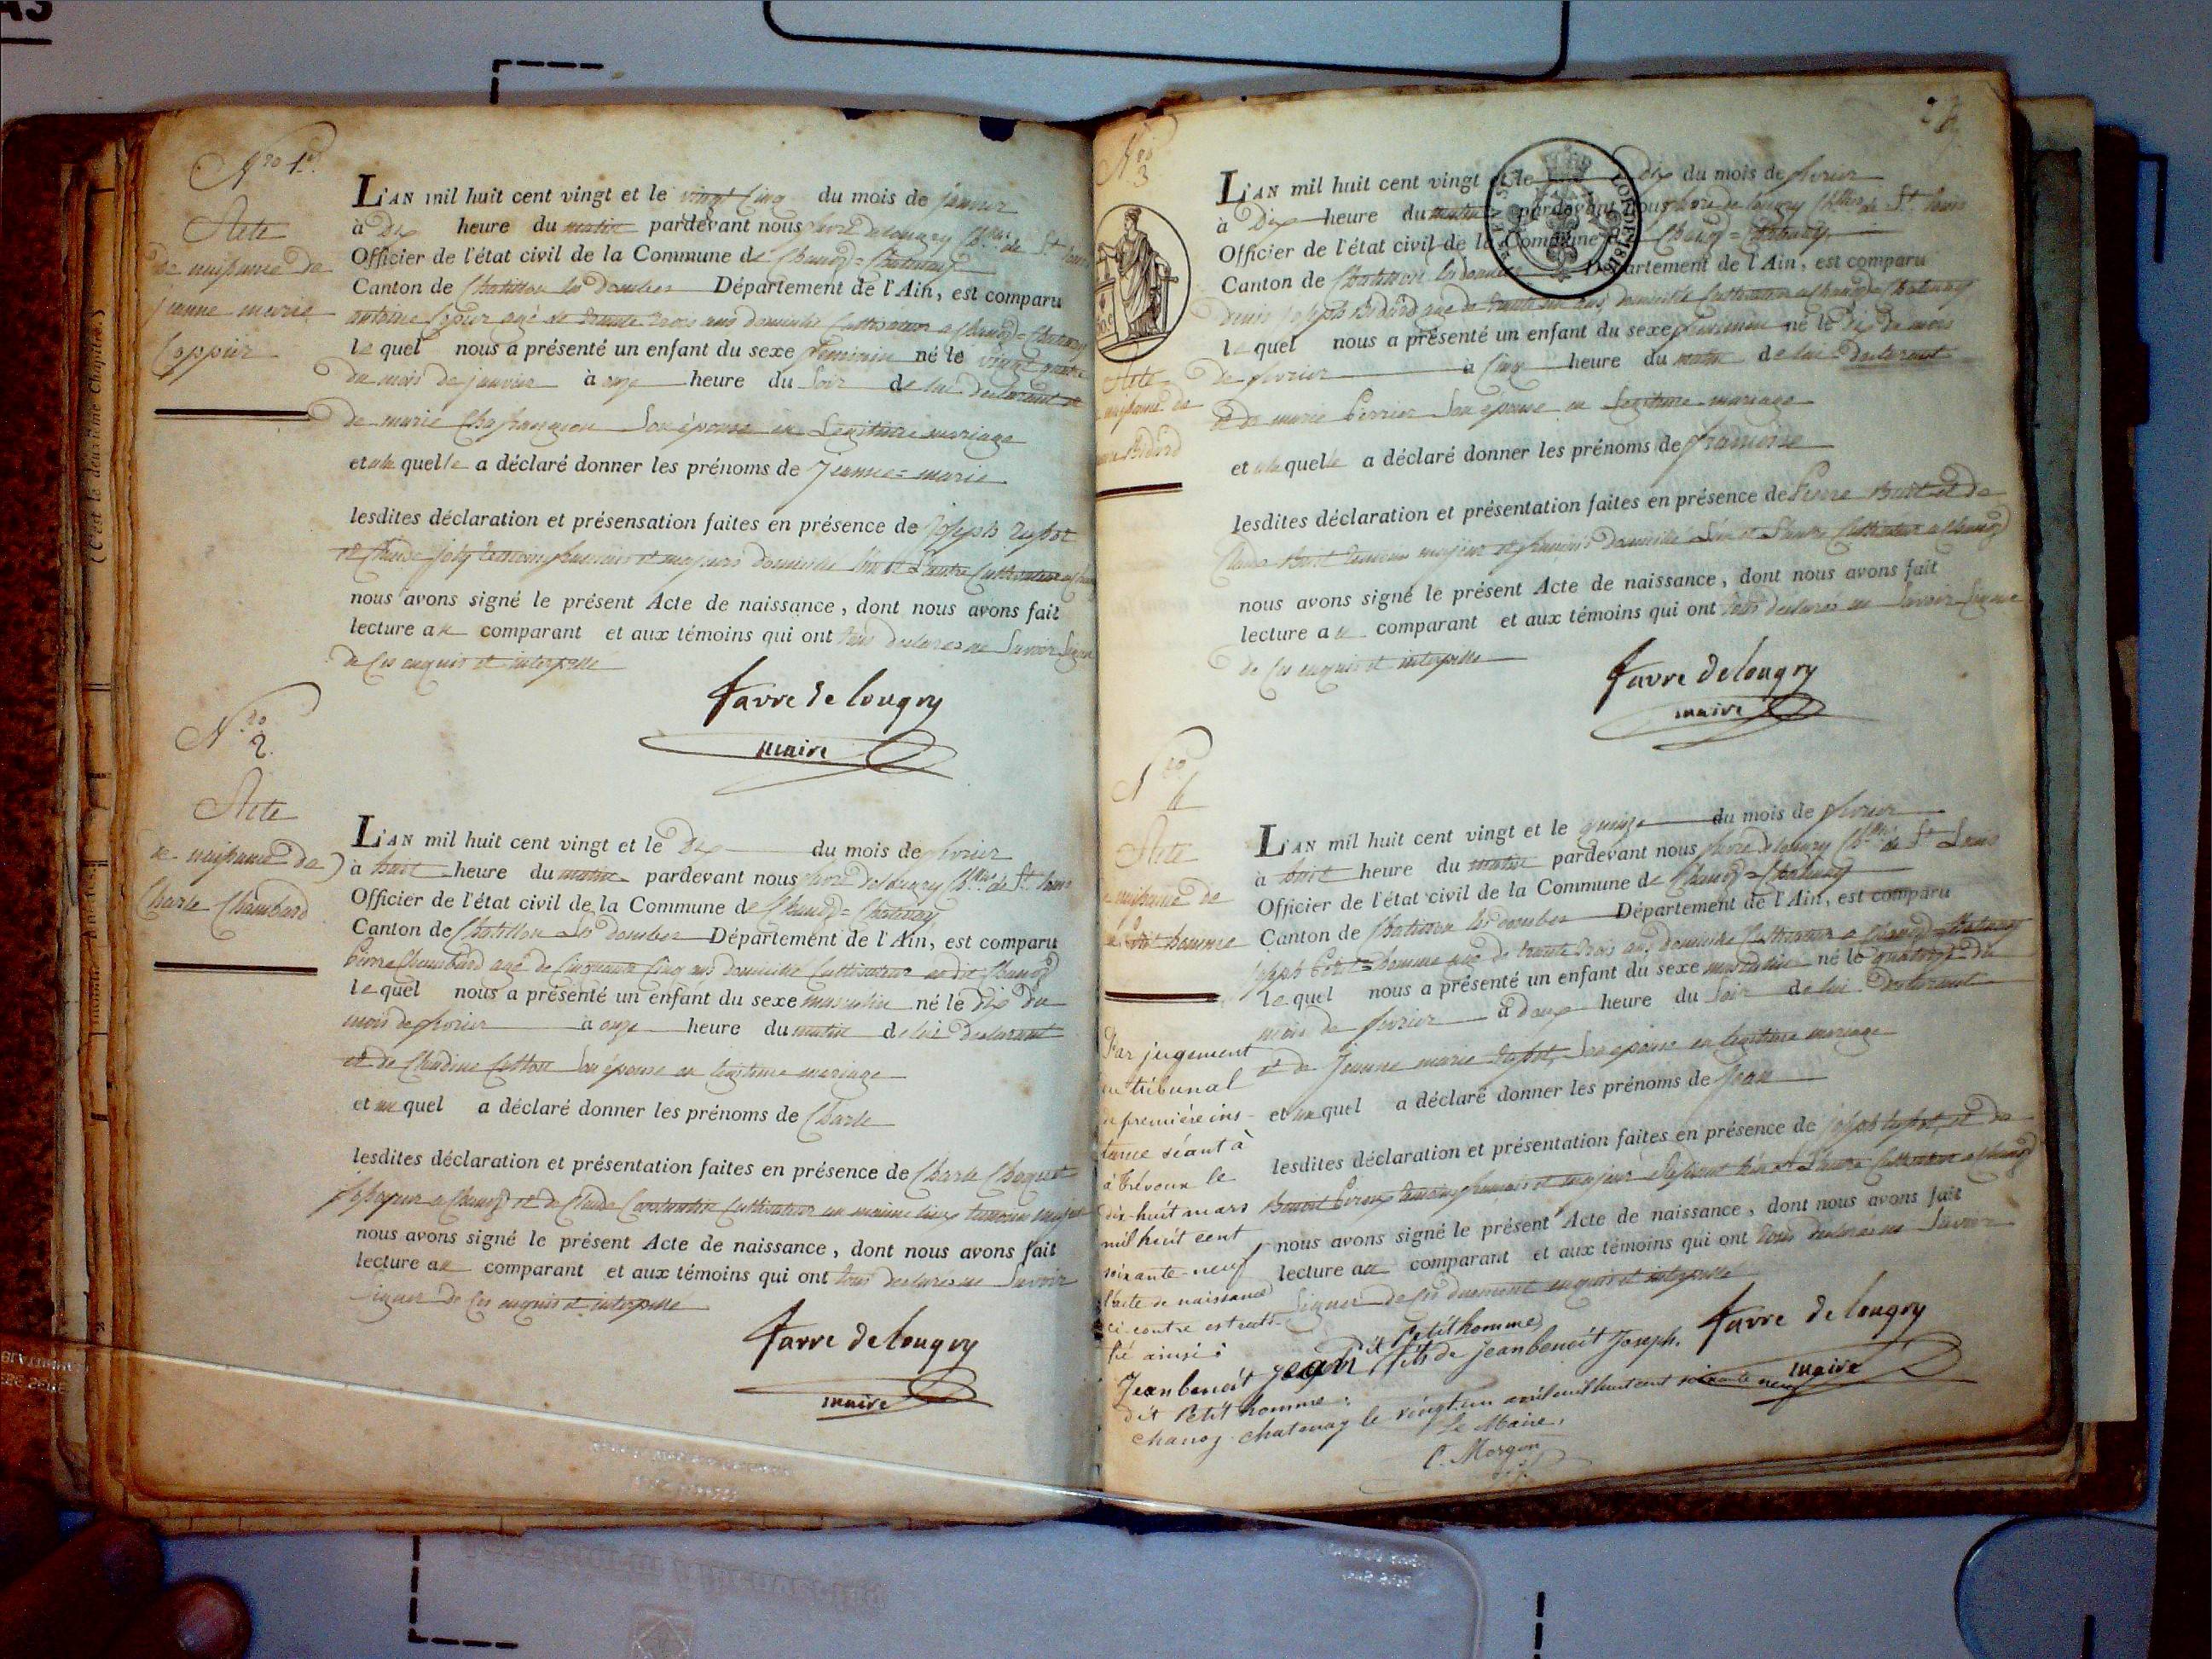 Nro 1er.
Acte
de naissance de
jeanne marie
Coppier
L'AN mil huit cent vingt et le vingt Cinq du mois de janvier
à Dix heure du matin pardevant nous favre delongry Ch.lier de St. Louis
Officier de l'état civil de la Commune de Chanoz=Chatenay
Canton de Chatillon les dombes Département de l'Ain, est comparu
antoine Copier agé de trente trois ans domicilié Cultivateur a Chanoz=Chatenay
lequel nous a présenté un enfant du sexe féminin né le vingt quatre
du mois de janvier à onze heure du Soir de lui declarant et
de marie Chafrangeon Son épouse en Legitime mariage
et a la quelle a déclaré donner les prénoms de Jeanne=marie
lesdites déclaration et présensation faites en présence de joseph
et Claude joly temoins francais et majeurs domicilié l'un et L'autre Cultivateur a
nous avons signé le présent Acte de naissance, dont nous avons fait
lecture au comparant et aux témoins qui ont tous declarés ne Savoir Signer
de Ces enquis et interpellé
favre de longry
maire
No 2.
Acte
de naissance de
Charle Chambard
L'AN mil huit cent vingt et le Dix du mois de fevrier
à huit heure du matin pardevant nous favre delongry Ch.lier de St. Louis
Officier de l'état civil de la Commune de Chanoz=Chatenay
Canton de Chatillon Les dombes Département de l'Ain, est comparu
Pierre Chambard agé de Cinquante Cinq ans domicilié Cultivateur au dit Chanoz
lequel nous a présenté un enfant du sexe masculin né le dix du
mois de fevrier à onze heure du matin de lui declarant
et de Claudine Cotton Son épouse en legitime mariage
et au quel a déclaré donner les prénoms de Charle
lesdites déclaration et présentation faites en présence de Charle
a Chanoz et de Claude Cultivateur au meme lieux temoins majeurs
nous avons signé le présent Acte de naissance, dont nous avons fait
lecture au comparant et aux témoins qui ont tous declarés ne Savoir
Signer de Ces enquis et interpellé
favre delongry
maire
No 3
Acte
naissance de
Bidard
L'AN mil huit cent vingt et le dix du mois de fevrier
à Dix heure du matin pardevant nous favre de longry Ch.lier de St. Louis
Officier de l'état civil de la Commune de Chanoz=Chatenay
Canton de Chatillon les dombes Département de l'Ain, est comparu
denis joseph Bidard agé de trente six ans domicilié Cultivateur a Chanoz Chatenay
lequel nous a présenté un enfant du sexe feminin né le dix du mois
de fevrier à Cinq heure du matin de lui declarant
et de marie Perrier Son épouse en Legitime mariage
et a la quelle a déclaré donner les prénoms de francoise
lesdites déclaration et présentation faites en présence de Pierre Buit et de
Claude Buit temoins majeur et francais domicilié L'un et L'autre Cultivateur a Chanoz
nous avons signé le présent Acte de naissance, dont nous avons fait
lecture au comparant et aux témoins qui ont tous declarés ne Savoir Signer
de Ces enquis et interpellé
favre delongry
maire
No 4
Acte
naissance de
dit homme
L'AN mil huit cent vingt et le quinze du mois de fevrier
à huit heure du matin pardevant nous favre delongry Ch.lier de St. Louis
Officier de l'état civil de la Commune de Chanoz=Chatenay
Canton de Chatillon les dombes Département de l'Ain, est comparu
joseph Petit=homme agé de trente trois ans domicilié Cultivateur a Chanoz Chatenay
lequel nous a présenté un enfant du sexe masculin né le quatorze du
mois de fevrier à deux heure du Soir de lui declarant
et de Jeanne marie Son épouse en legitime mariage
et au quel a déclaré donner les prénoms de Jean
lesdites déclaration et présentation faites en présence de joseph et de
Benoit temoins francais et majeur L'un et L'autre Cultivateur a Chanoz
nous avons signé le présent Acte de naissance, dont nous avons fait
lecture au comparant et aux témoins qui ont tous declarés ne Savoir
Signer de Ces dument enquis et interpellé
favre de longry
maire
Par jugement
du tribunal
de première ins-
tance séant à
à Trévoux le
dix-huit mars
mil huit cent
soixante-neuf
l'acte de naissance
ci-contre est recti-
fié ainsi:
Jean benoît Joseph dit Petit homme, fils de Jean benoît Joseph,
dit Petit homme:
Chanoz-chatenay le vingt un avril mil huit cent soixante neuf
Le Maire,
C. Morgon